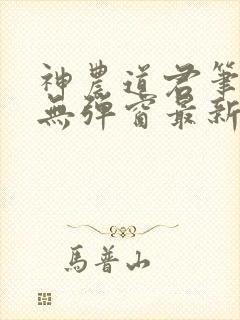 神農道君筆
無彈窗最新
馬普山